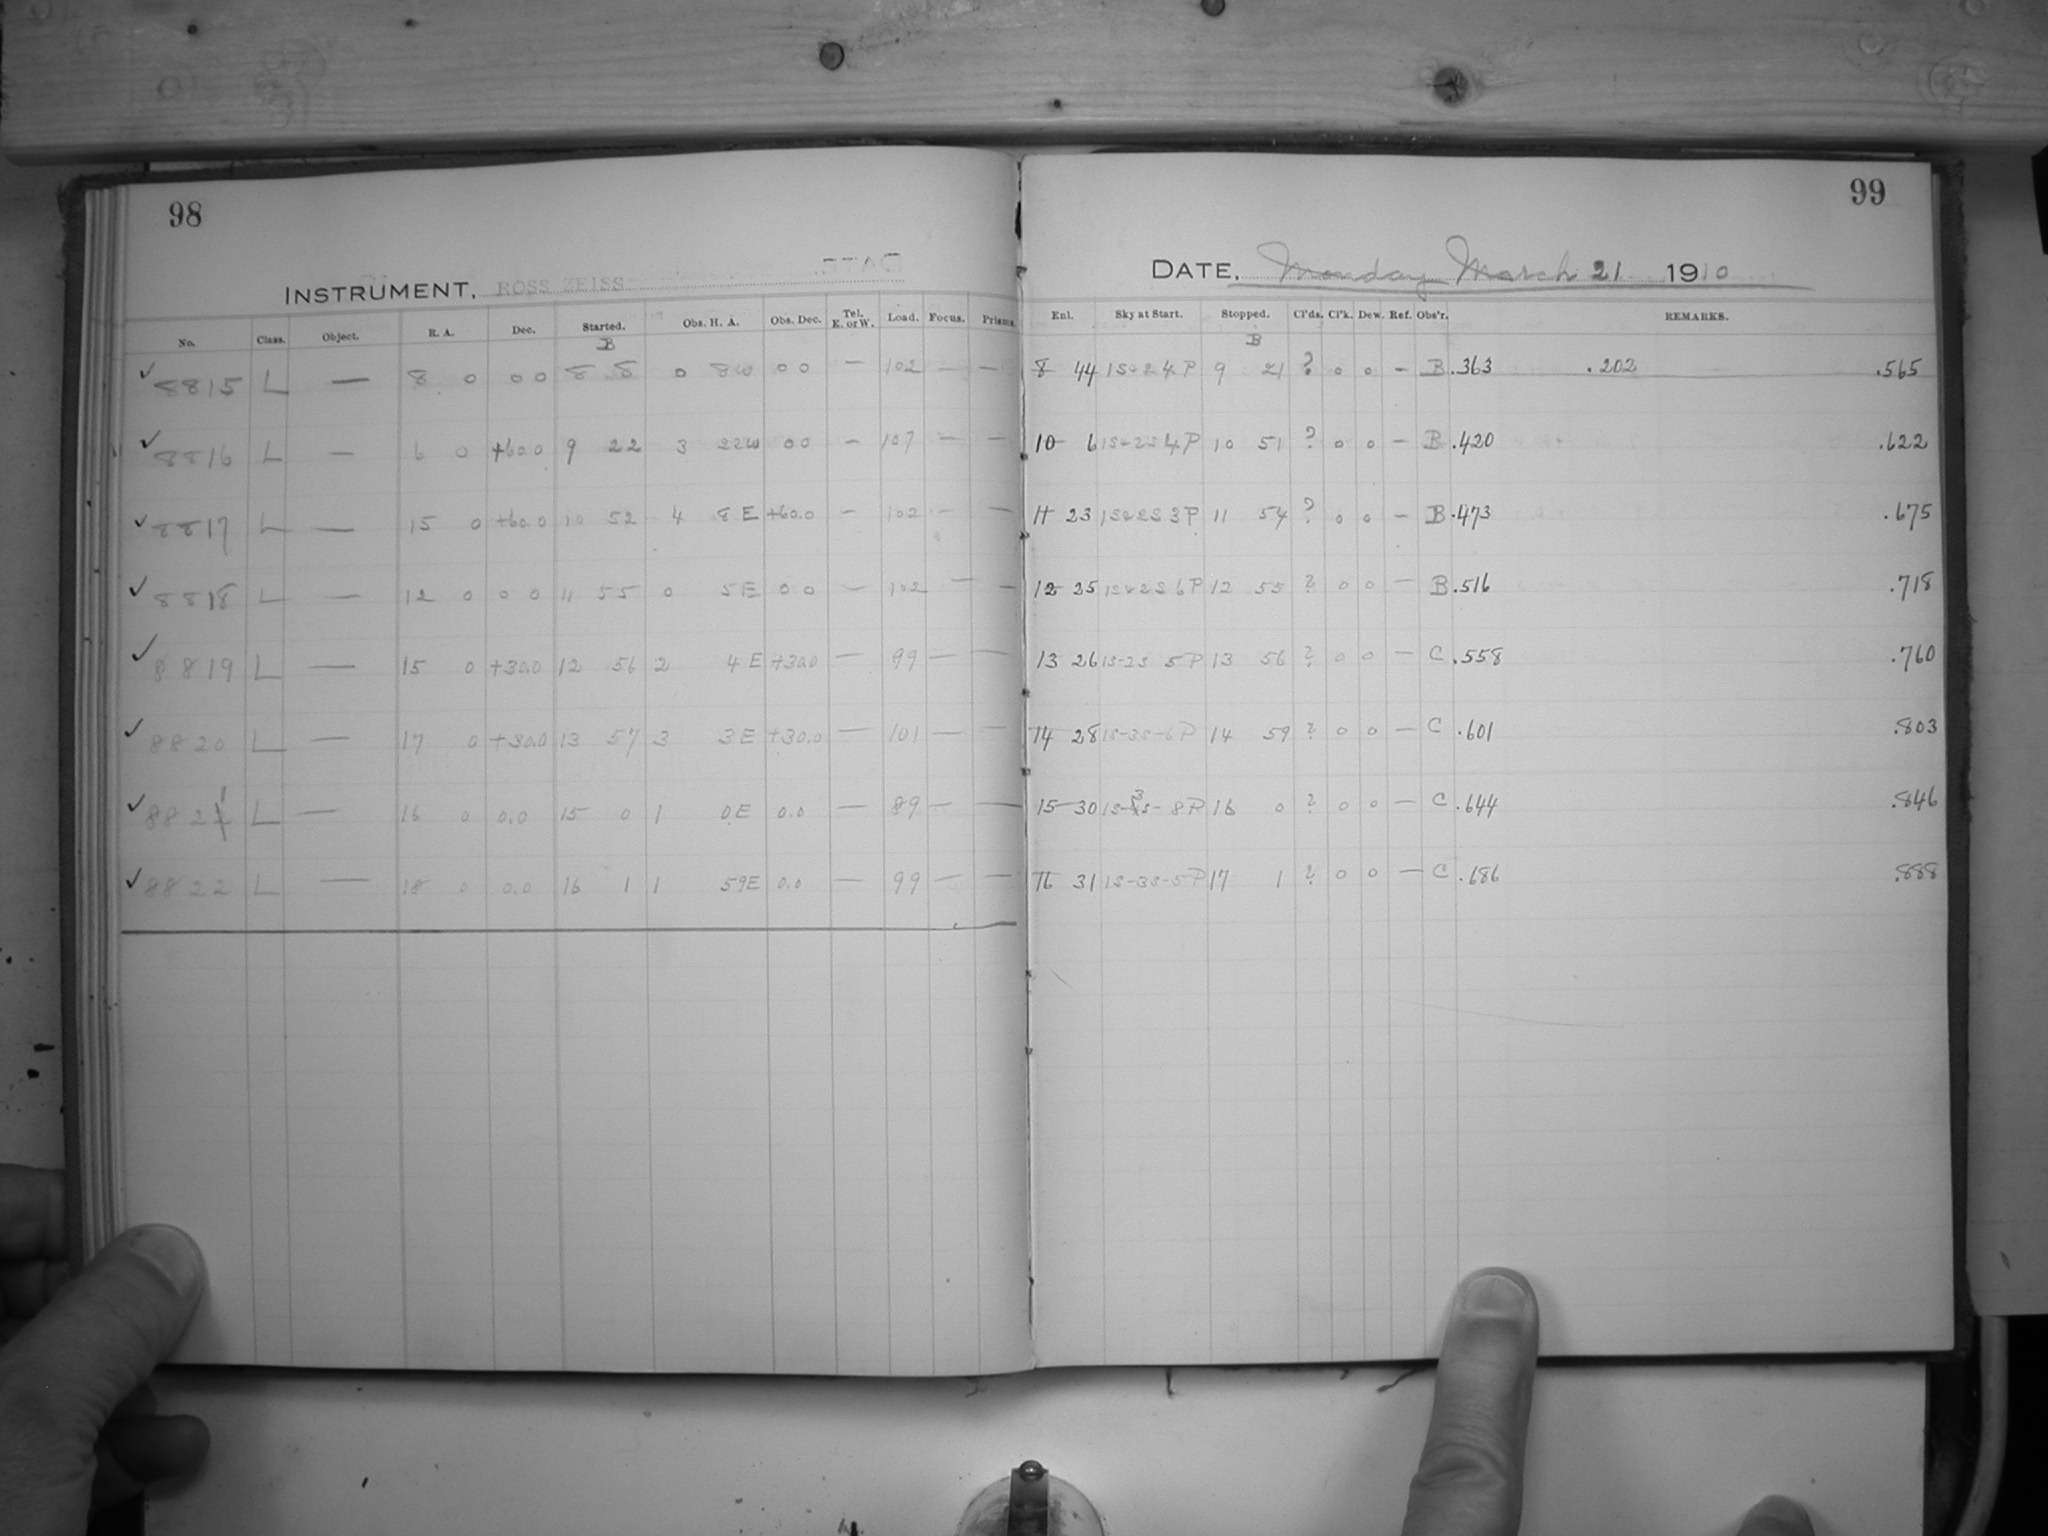 98
INSTRUMENT. ROSS ZEISS
No. Class. Object. R. A. Dec. Started. Obs. H. A. Obs. Dec. Tel. E. or W. Load. Focus. Prisms.
B
✓ 8815 L — 8 0 0 0 0 8 8 0 8W 0 0 — 102 — —
✓ 8816 L — 6 0 +60.0 9 22 3 22W 0 0 — 107 — —
✓ 8817 L — 15 0 +60.0 10 52 4 8 E +60.0 — 102 — —
✓ 8818 L — 12 0 0 0 11 55 0 5E 0 0 — 102 — —
✓ 8819 L — 15 0 +30.0 12 56 2 4 E +30.0 — 99 — —
✓ 8820 L — 17 0 +30.0 13 57 3 3E +30.0 — 101 — —
✓ 8821 L — 16 0 0.0 15 0 1 0E 0.0 — 89 — —
✓ 8822 L — 18 0 0.0 16 1 1 59E 0.0 — 99 — —
99
DATE. Monday March 21 1910
Enl. Sky at Start. Stopped. Cl'ds. Cl'k. Dew. Ref. Obs'r. REMARKS.
B
8 44 9 21 ? 0 0 – B .363 .202 .565
10 6 10 51 ? 0 0 – B .420 .622
11 23 11 54 ? 0 0 – B .473 .675
12 25 12 55 ? 0 0 – B .516 .718
13 26 1S-2S 5P 13 56 ? 0 0 – C .558 .760
14 28 1S-3S-6P 14 59 ? 0 0 – C .601 .803
15 30 1S-3S-8P 16 0 ? 0 0 – C .644 .846
16 31 1S-3S-5P 17 1 ? 0 0 – C .686 .888